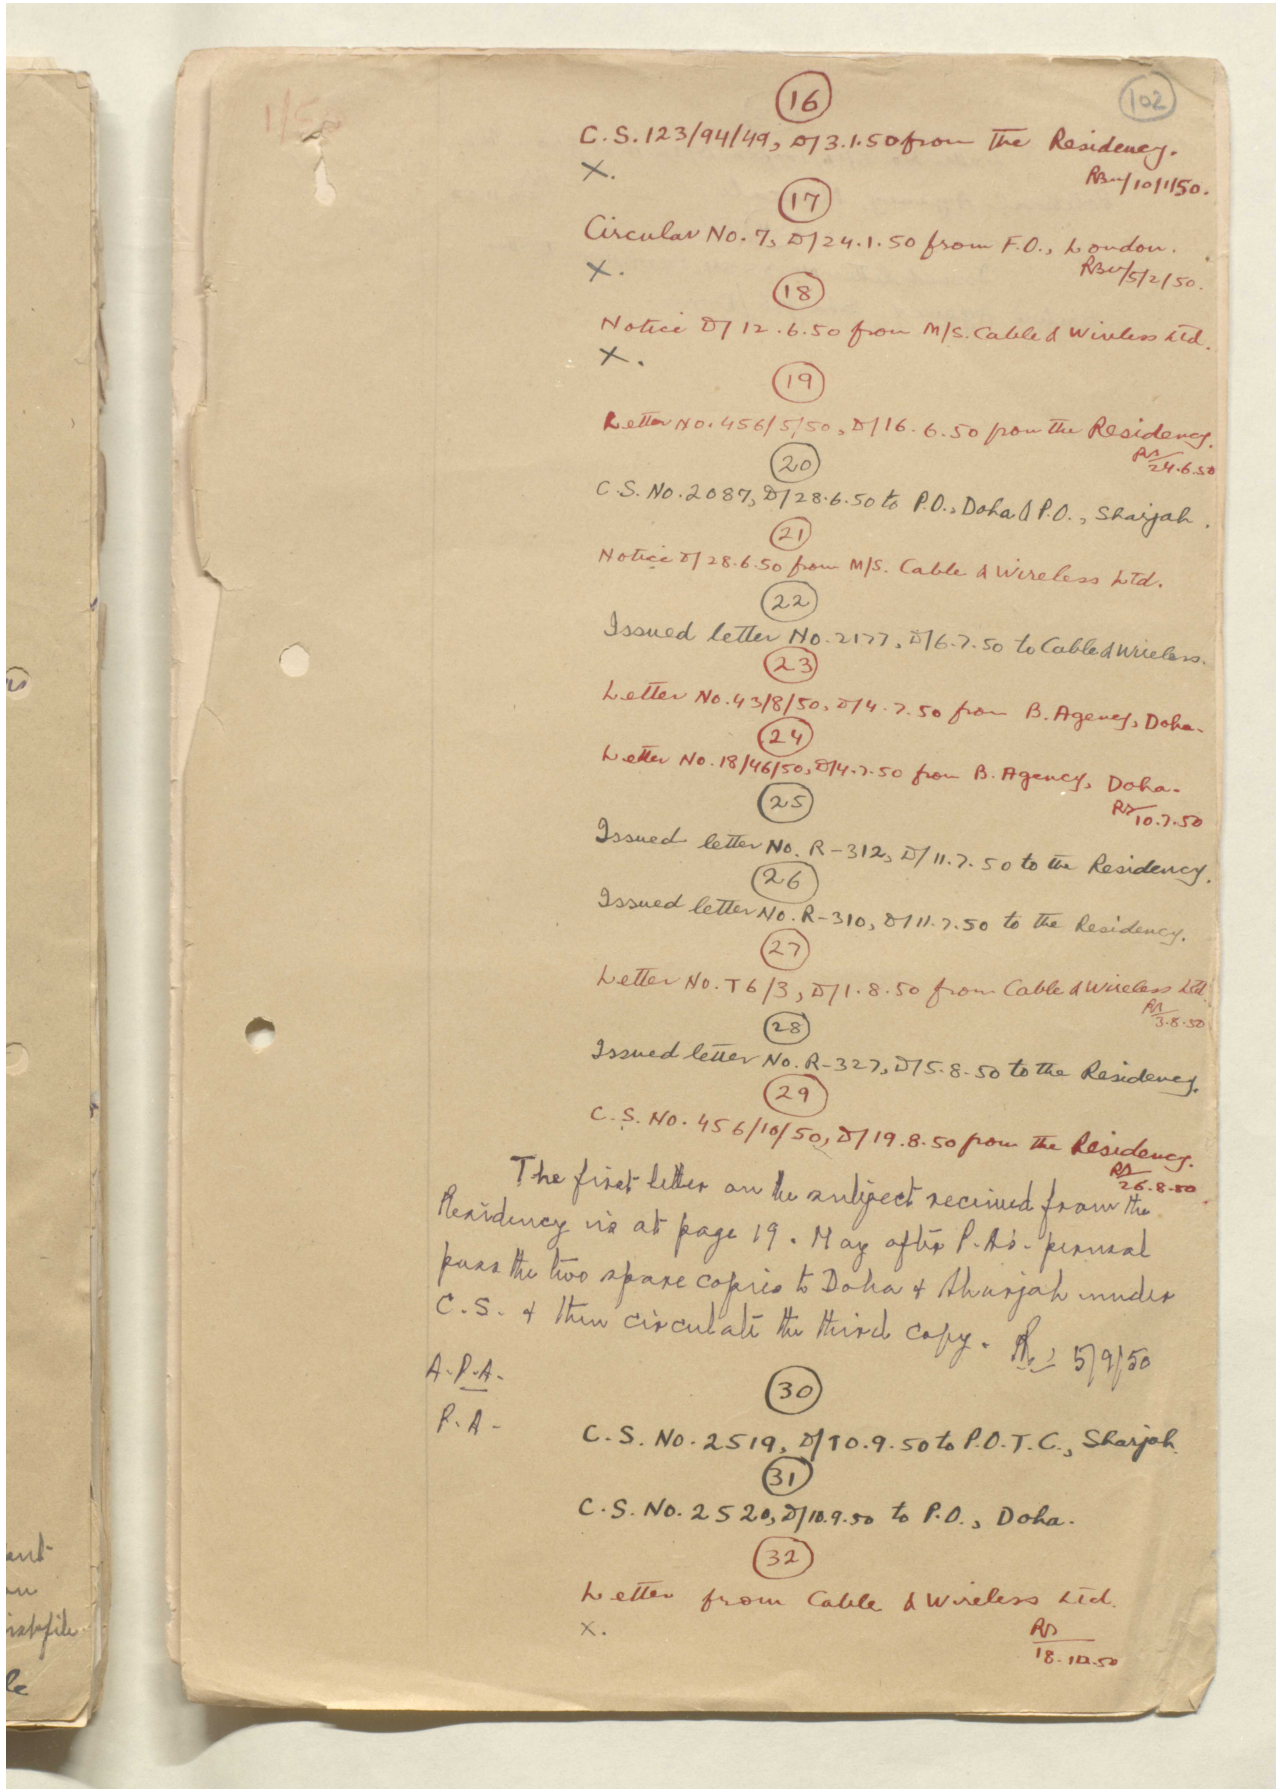 16
102
C.S. 123/94/49, D/3.1.50 from the Residency.
X.
10/1/50.
17
Circular No. 7, D/24.1.50 from F.O., London.
X.
5/2/50.
18
Notice D/12.6.50 from M/S. Cable & Wireless Ltd.
X.
19
Letter No. 456/5/50, D/16.6.50 from the Residency.
24.6.50
20
C.S. No. 2087, D/28.6.50 to P.O., Doha & P.O., Sharjah.
21
Notice D/28.6.50 from M/S. Cable & Wireless Ltd.
22
Issued letter No. 2177, D/6.7.50 to Cable & Wireless.
23
Letter No. 43/8/50, D/4.7.50 from B. Agency, Doha.
24
Letter No. 18/46/50, D/4.7.50 from B. Agency, Doha.
10.7.50
25
Issued letter No. R-312, D/11.7.50 to the Residency.
26
Issued letter No. R-310, D/11.7.50 to the Residency.
27
Letter No. T6/3, D/1.8.50 from Cable & Wireless Ltd.
3.8.50
28
Issued letter No. R-327, D/5.8.50 to the Residency.
29
C.S. No. 456/10/50, D/19.8.50 from the Residency.
26.8.50
The first letter on the subject received from the
Residency is at page 19. May after P.A's. perusal
pass the two spare copies to Doha & Sharjah under
C.S. & then circulate the third copy.
5/9/50
A.P.A.
P.A.
30
C.S. No. 2519, D/10.9.50 to P.O.T.C., Sharjah.
31
C.S. No. 2520, D/10.9.50 to P.O., Doha.
32
Letter from Cable & Wireless Ltd.
X.
18.10.50